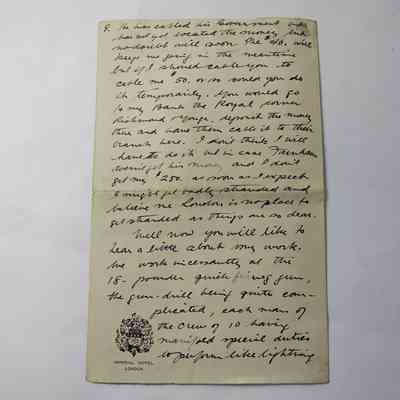 9. He has cabled his Government but
has not yet located the money but
no doubt will soon. The will
keep me going in the meantime
but if I should cable you to
cable me $50. or so would you do
it temporarily. You would go
to my Bank the Royal corner
Richmond Yonge, deposit the money
there and have them cable it to their
branch here. I don't think I will
have to do it but in case Farnham
doesn't get his money and I don't
get my $250. as soon as I expect
I might get badly stranded and
believe me London is no place to
get stranded as things are so dear.
Well now you will like to
hear a little about my work.
We work incessantly at the
18-pounder quick firing gun,
the gun-drill being quite com-
plicated, each man of
the Crew of 10 having
manifold special duties
to perform like lightning
IMPERIAL HOTEL
LONDON